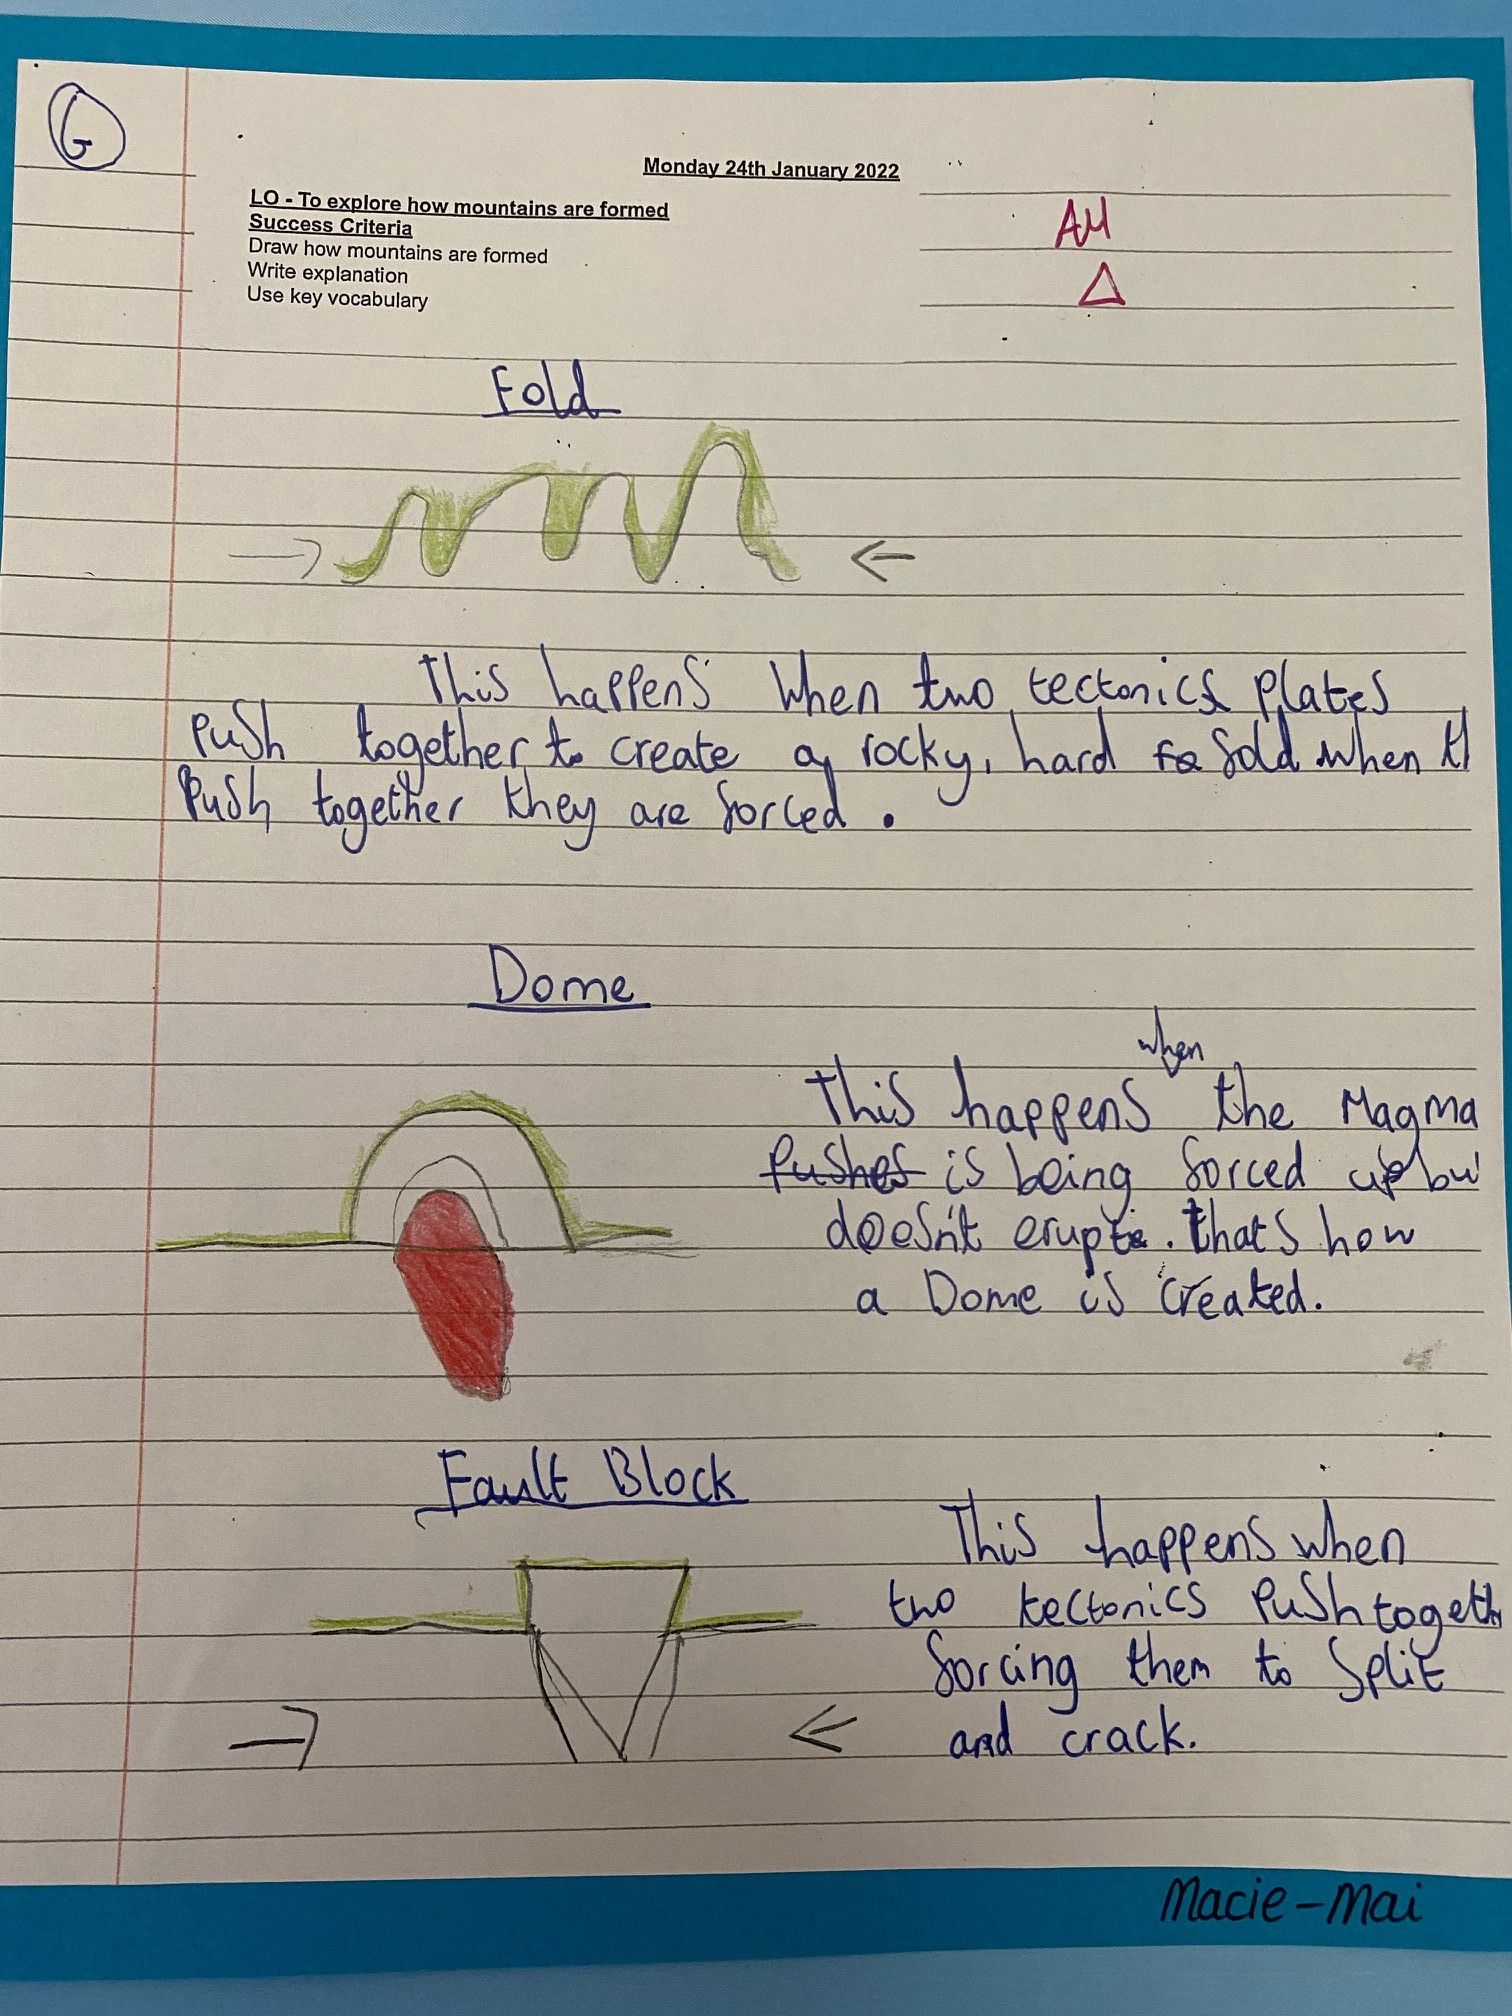 G
Monday 24th January 2022
LO - To explore how mountains are formed
Success Criteria
Draw how mountains are formed
Write explanation
Use key vocabulary
AM
Fold
This happens when two tectonics plates
push together to create a rocky, hard fold when th
push together they are forced.
Dome
when
This happens the Magma
pushes is being forced up bu
doesn't erupt. that's how
a Dome is created.
Fault Block
This happens when
two tectonics push togeth
forcing them to split
and crack.
Macie-Mai